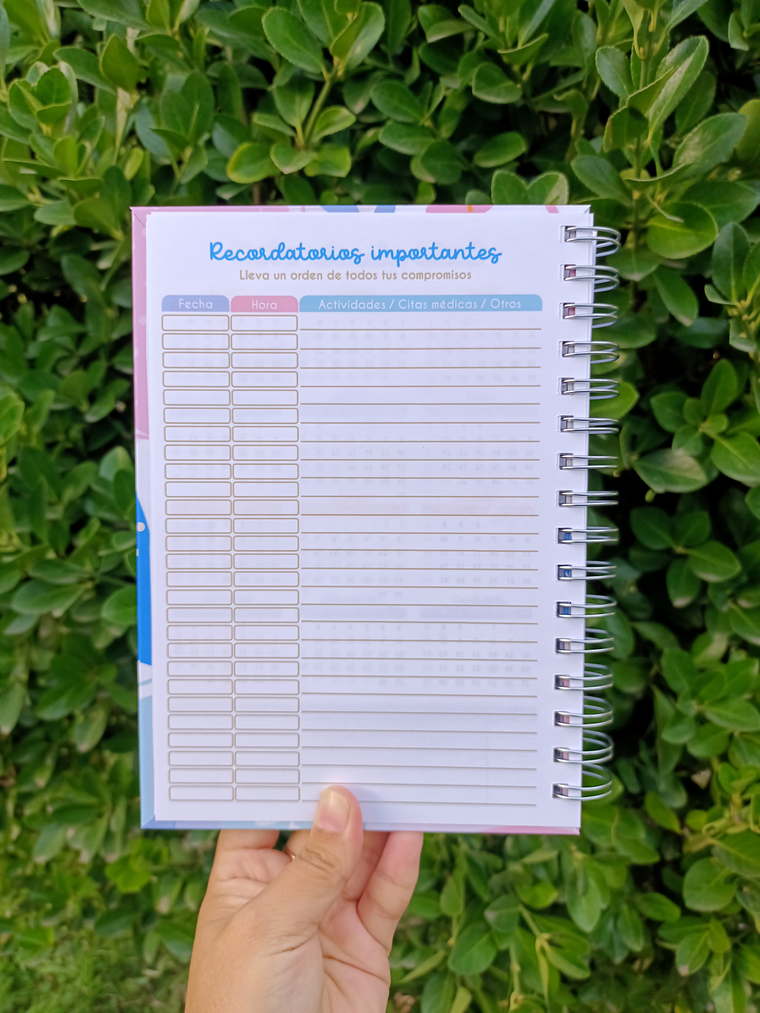 Recordatorios importantes
Lleva un orden de todos tus compromisos
Fecha Hora Actividades / Citas médicas / Otros